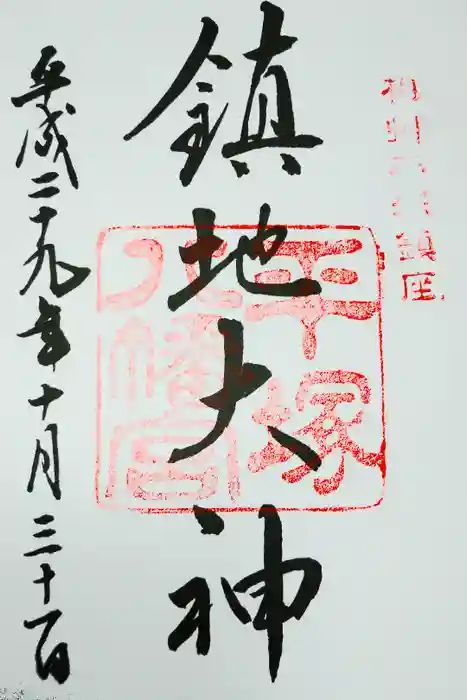 相州
鎮座
鎮地大神
平塚
八幡宮
平成二十九年十月三十一日